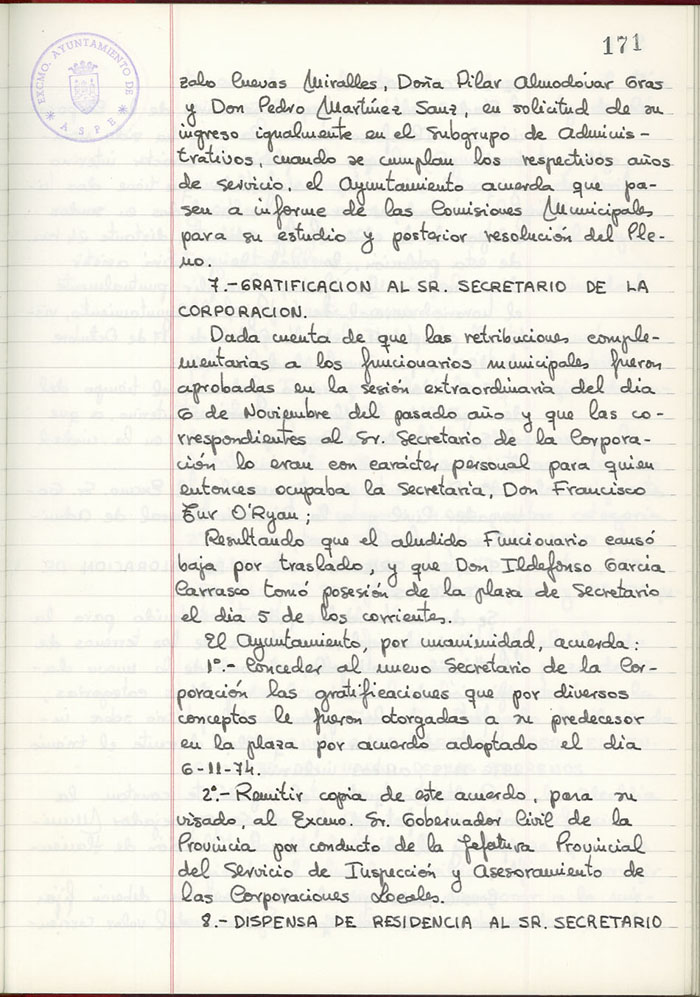 171
EXCMO. AYUNTAMIENTO DE
* ASPE *
zalo Cuevas Miralles, Doña Pilar Almodóvar Gras
y Don Pedro Martínez Sanz, en solicitud de su
ingreso igualmente en el Subgrupo de Adminis-
trativos, cuando se cumplan los respectivos años
de servicio, el Ayuntamiento acuerda que pa-
sen a informe de las Comisiones Municipales
para su estudio y posterior resolución del Ple-
no.
7.- GRATIFICACION AL SR. SECRETARIO DE LA
CORPORACION.
Dada cuenta de que las retribuciones comple-
mentarias a los funcionarios municipales fueron
aprobadas en la sesión extraordinaria del dia
6 de Noviembre del pasado año y que las co-
rrespondientes al Sr. Secretario de la Corpora-
ción lo eran con carácter personal para quien
entonces ocupaba la Secretaría, Don Francisco
Zur O'Ryan;
Resultando que el aludido Funcionario causó
baja por traslado, y que Don Ildefonso García
Carrasco tomó posesión de la plaza de Secretario
el día 5 de los corrientes.
El Ayuntamiento, por unanimidad, acuerda:
1º.- Conceder al nuevo Secretario de la Cor-
poración las gratificaciones que por diversos
conceptos le fueron otorgadas a su predecesor
en la plaza por acuerdo adoptado el dia
6-11-74.
2º.- Remitir copia de este acuerdo, para su
visado, al Excmo. Sr. Gobernador Civil de la
Provincia por conducto de la Jefatura Provincial
del Servicio de Inspección y Asesoramiento de
las Corporaciones Locales.
8.- DISPENSA DE RESIDENCIA AL SR. SECRETARIO